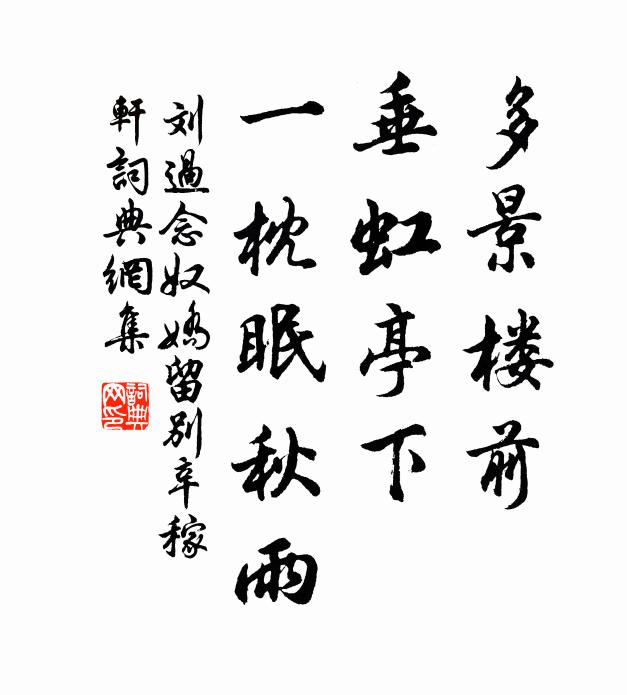 多景楼前
垂虹亭下
一枕眠秋雨
刘過念奴嬌留别辛稼
軒詞典網集
詞典网印